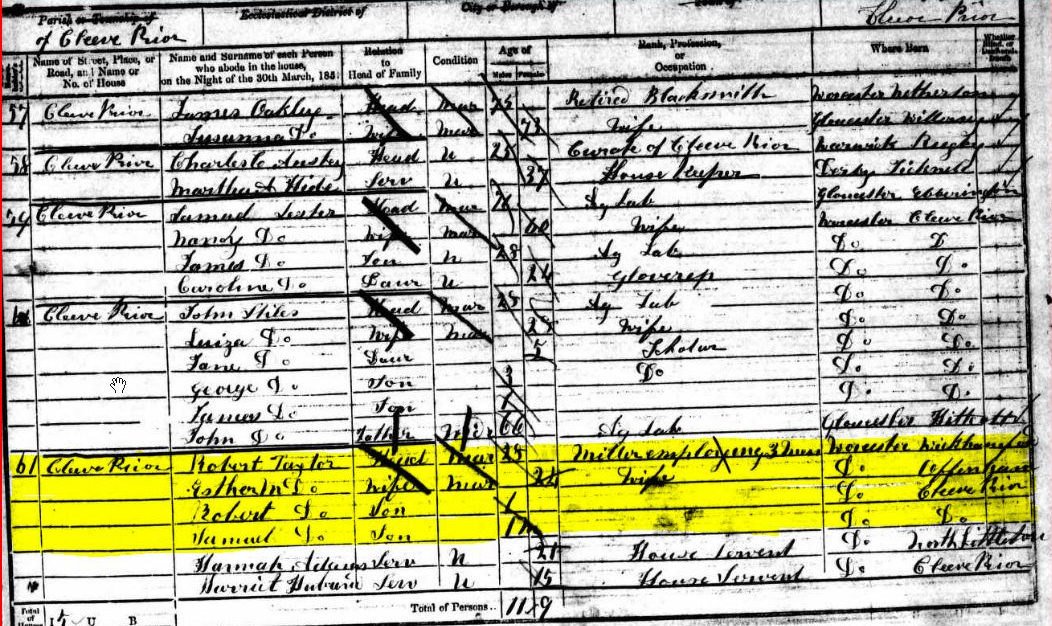 Parish or Township of Ecclesiastical District of City or Borough of Town of
of Cleeve Prior Cleeve Prior
Name of Street, Place, or Road, and Name or No. of House Name and Surname of each Person who abode in the house, on the Night of the 30th March, 1851 Relation to Head of Family Condition Age of Males Females Rank, Profession, or Occupation Where Born Whether Blind, or Deaf-and-Dumb
57 Cleeve Prior James Oakley Head Mar 75 Retired Blacksmith Worcester
Susanna Do Wife Mar 73 Wife Gloucester
58 Cleeve Prior Head U 25 Curate of Cleeve Prior Warwick Rugby
Martha A Hide Serv U 37 House Keeper Derby Ticknell
59 Cleeve Prior Samuel Head Mar Ag Lab Gloucester Ebbrington
Nancy Do Wife Mar 60 Wife Worcester Cleeve Prior
James Do Son U 28 Ag Lab Do D
Caroline Do Daur U 24 Glover Do Do
Cleeve Prior John Stiles Head Mar 28 Ag Lab Do Do
Luiza Do Wife Mar 28 Wife Do Do
Jane Do Daur 5 Scholar Do Do
George Do Son 3 Do Do Do
James Do Son 1 Do Do
John Do Father 66 Ag Lab Gloucester
61 Cleeve Prior Robert Taylor Head Mar 35 Miller employing 3 men Worcester
Esther M Do Wife Mar 25 Wife Do
Robert Do Son 1 Do Cleeve Prior
Samuel Do Son 1m Do Do
Hannah Adams Serv U 21 House Servent Do North Littleton
Harriet Serv U 15 House Servent Do Cleeve Prior
Total of Houses 15 U B Total of Persons.. 11 9